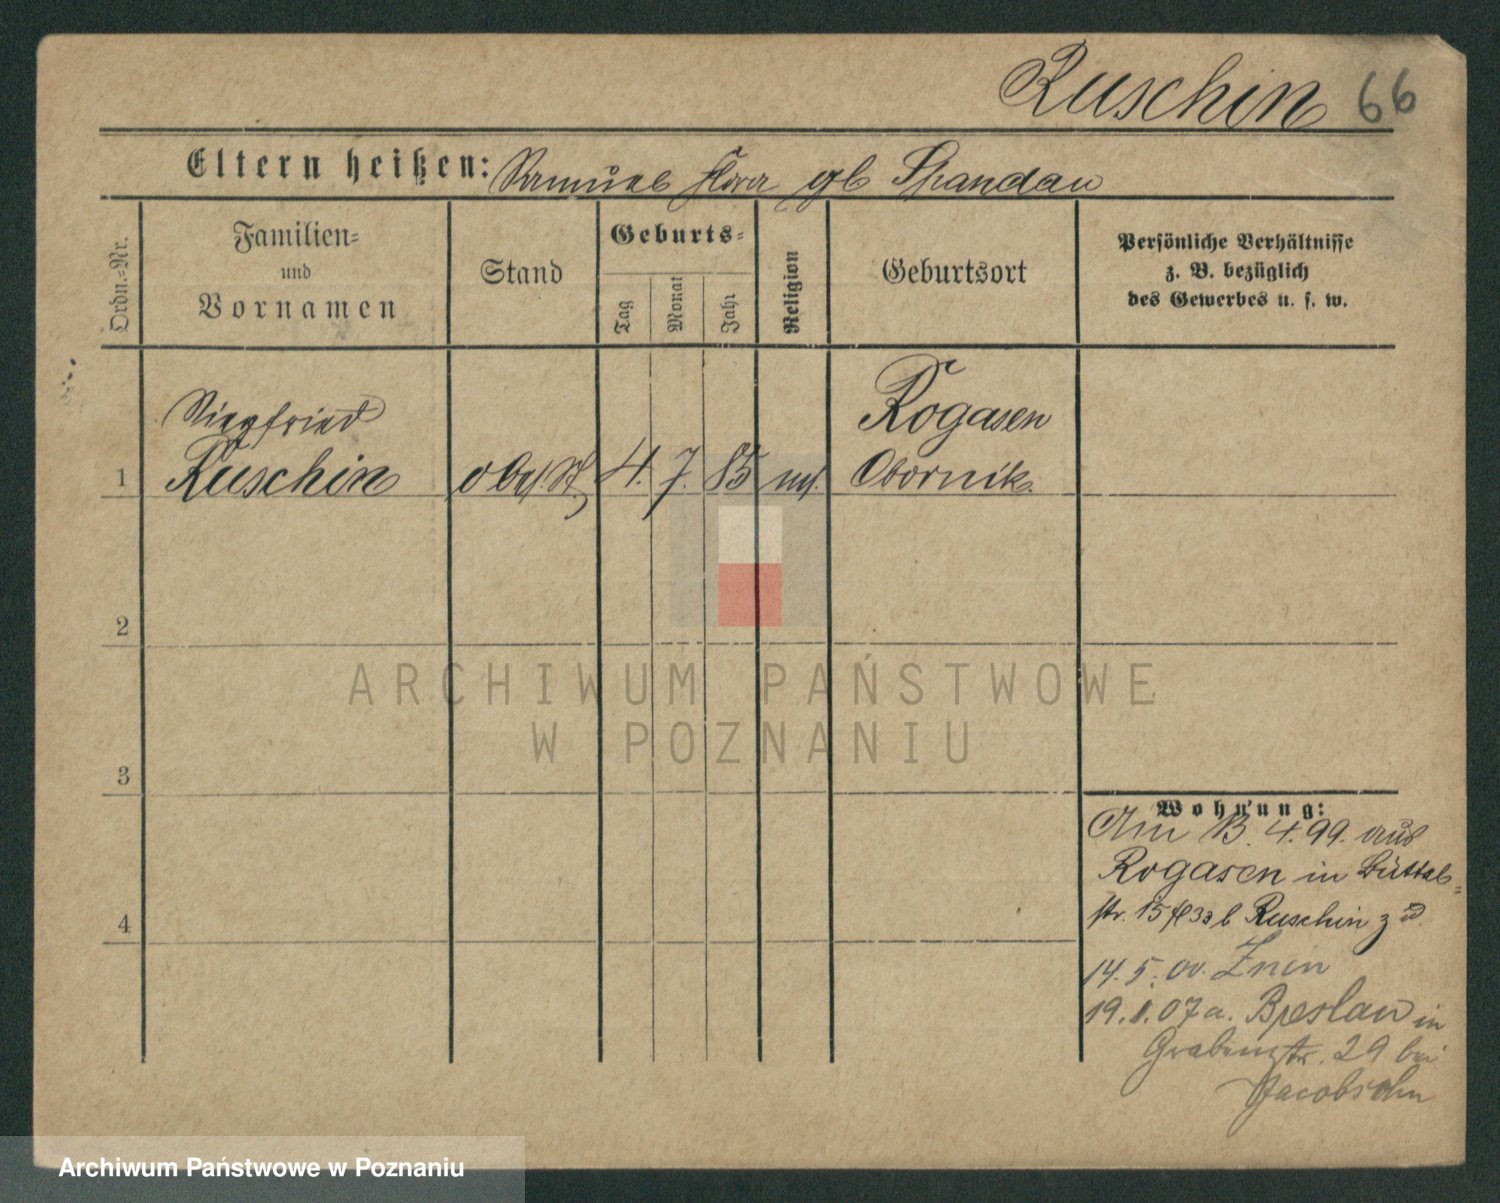 Ruschin 66
Eltern heißen: Samuel Flora gb Spandau
Ordn.=Nr.
Familien=
und
Vornamen
Stand
Geburts=
Tag
Monat
Jahr
Religion
Geburtsort
Persönliche Verhältnisse
z. B. bezüglich
des Gewerbes u. s. w.
Siegfried
Rogasen
1 Ruschin 4. 7. 85 Obornik.
2
ARCHIWUM PAŃSTWOWE
W POZNANIU
3
Wohnung:
Am 13. 4. 99. aus
Rogasen in
str. 15 b Ruschin
4
14. 5. 00. Znin
19. 07 a. Breslau in
Grabenstr. 29 bei
Jacobsohn
Archiwum Państwowe w Poznaniu